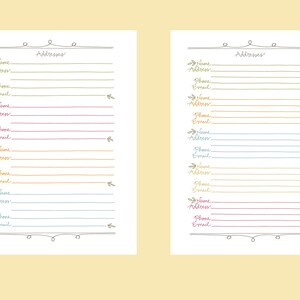 Addresses
Name
Address
Phone
Email
Name
Address
Phone
Email
Name
Address
Phone
Email
Name
Address
Phone
Email
Addresses
Name
Address
Phone
Email
Name
Address
Phone
Email
Name
Address
Phone
Email
Name
Address
Phone
Email